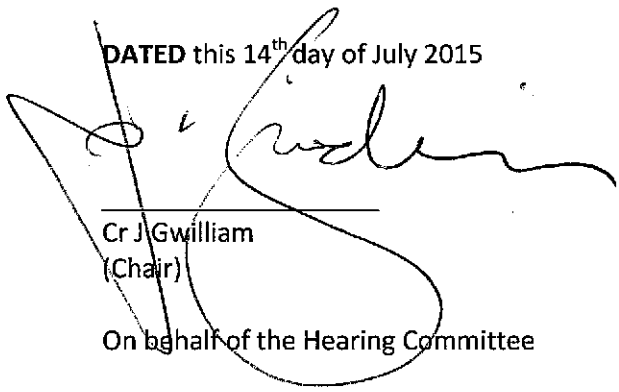 DATED this 14th day of July 2015
Cr J Gwilliam
(Chair)
On behalf of the Hearing Committee